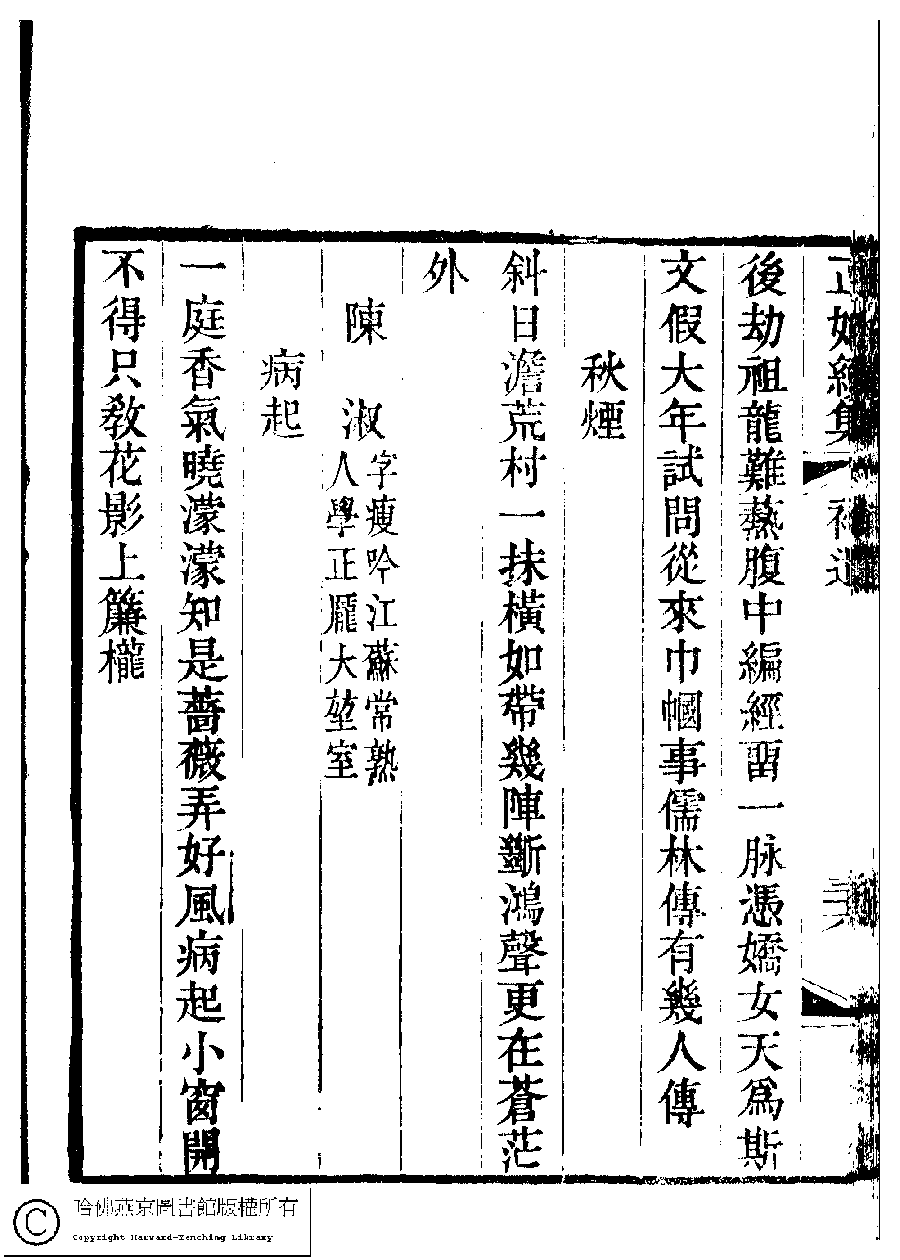 正始集 補遺
後劫祖龍難爇腹中編經畱一脉憑嬌女天爲斯
文假大年試問從來巾幗事儒林傳有幾人傳
秋煙
斜日澹荒村一抹橫如帶幾陣斷鴻聲更在蒼茫
外
陳淑 字瘦吟江蘇常熟
人學正龎大堃室
病起
一庭香氣曉濛濛知是薔薇弄好風病起小窗開
不得只敎花影上簾櫳
哈佛燕京圖書館版權所有
Copyright Harvard-Yenching Library